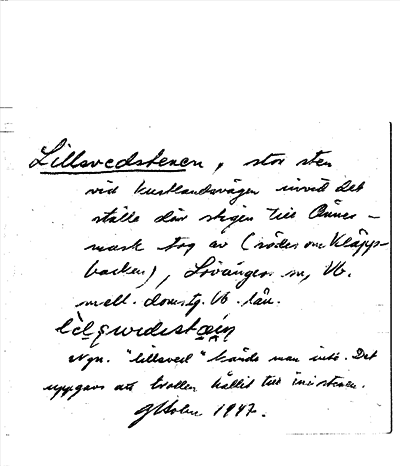 Lillsvedstenen, stor sten
vid kustlandsvägen invid det
ställe där stigen till Önnes-
mark tog av (söder om Kläpp-
backen), Lövångers sn, Vb.
mell. domsg. Vb. län.
Ngn. "lillsved" kände man inte. Det
uppgavs att trollen hållit till inistenen.
1947.